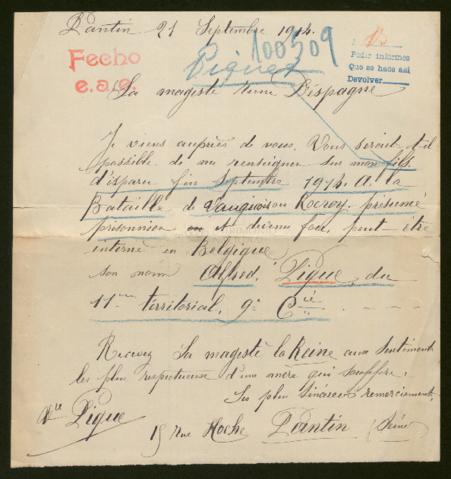 Pantin 21 Septembre 1914.
100509
Fecho
e.a.o.
Piguet
Poder informes
Que se haos asi
Devolver
Sa magesté d'Espagne
Je viens auprès de vous. Vous serait-il
possible de me renseigner sur mon fils
disparu fin Septembre 1914. A la
Bataille de ou Rocroy, présumé
prisonnier et devenu fou, peut être
interné en Belgique
son nom Alfred, Pigue, du
11me territorial. 9e Cie
Recevez Sa magesté la Reine aux sentiments
les plus respectueux d'une mère qui souffre.
Ses plus sincères remerciements,
Vve Pigue
15 rue Hoche Pantin (Seine)